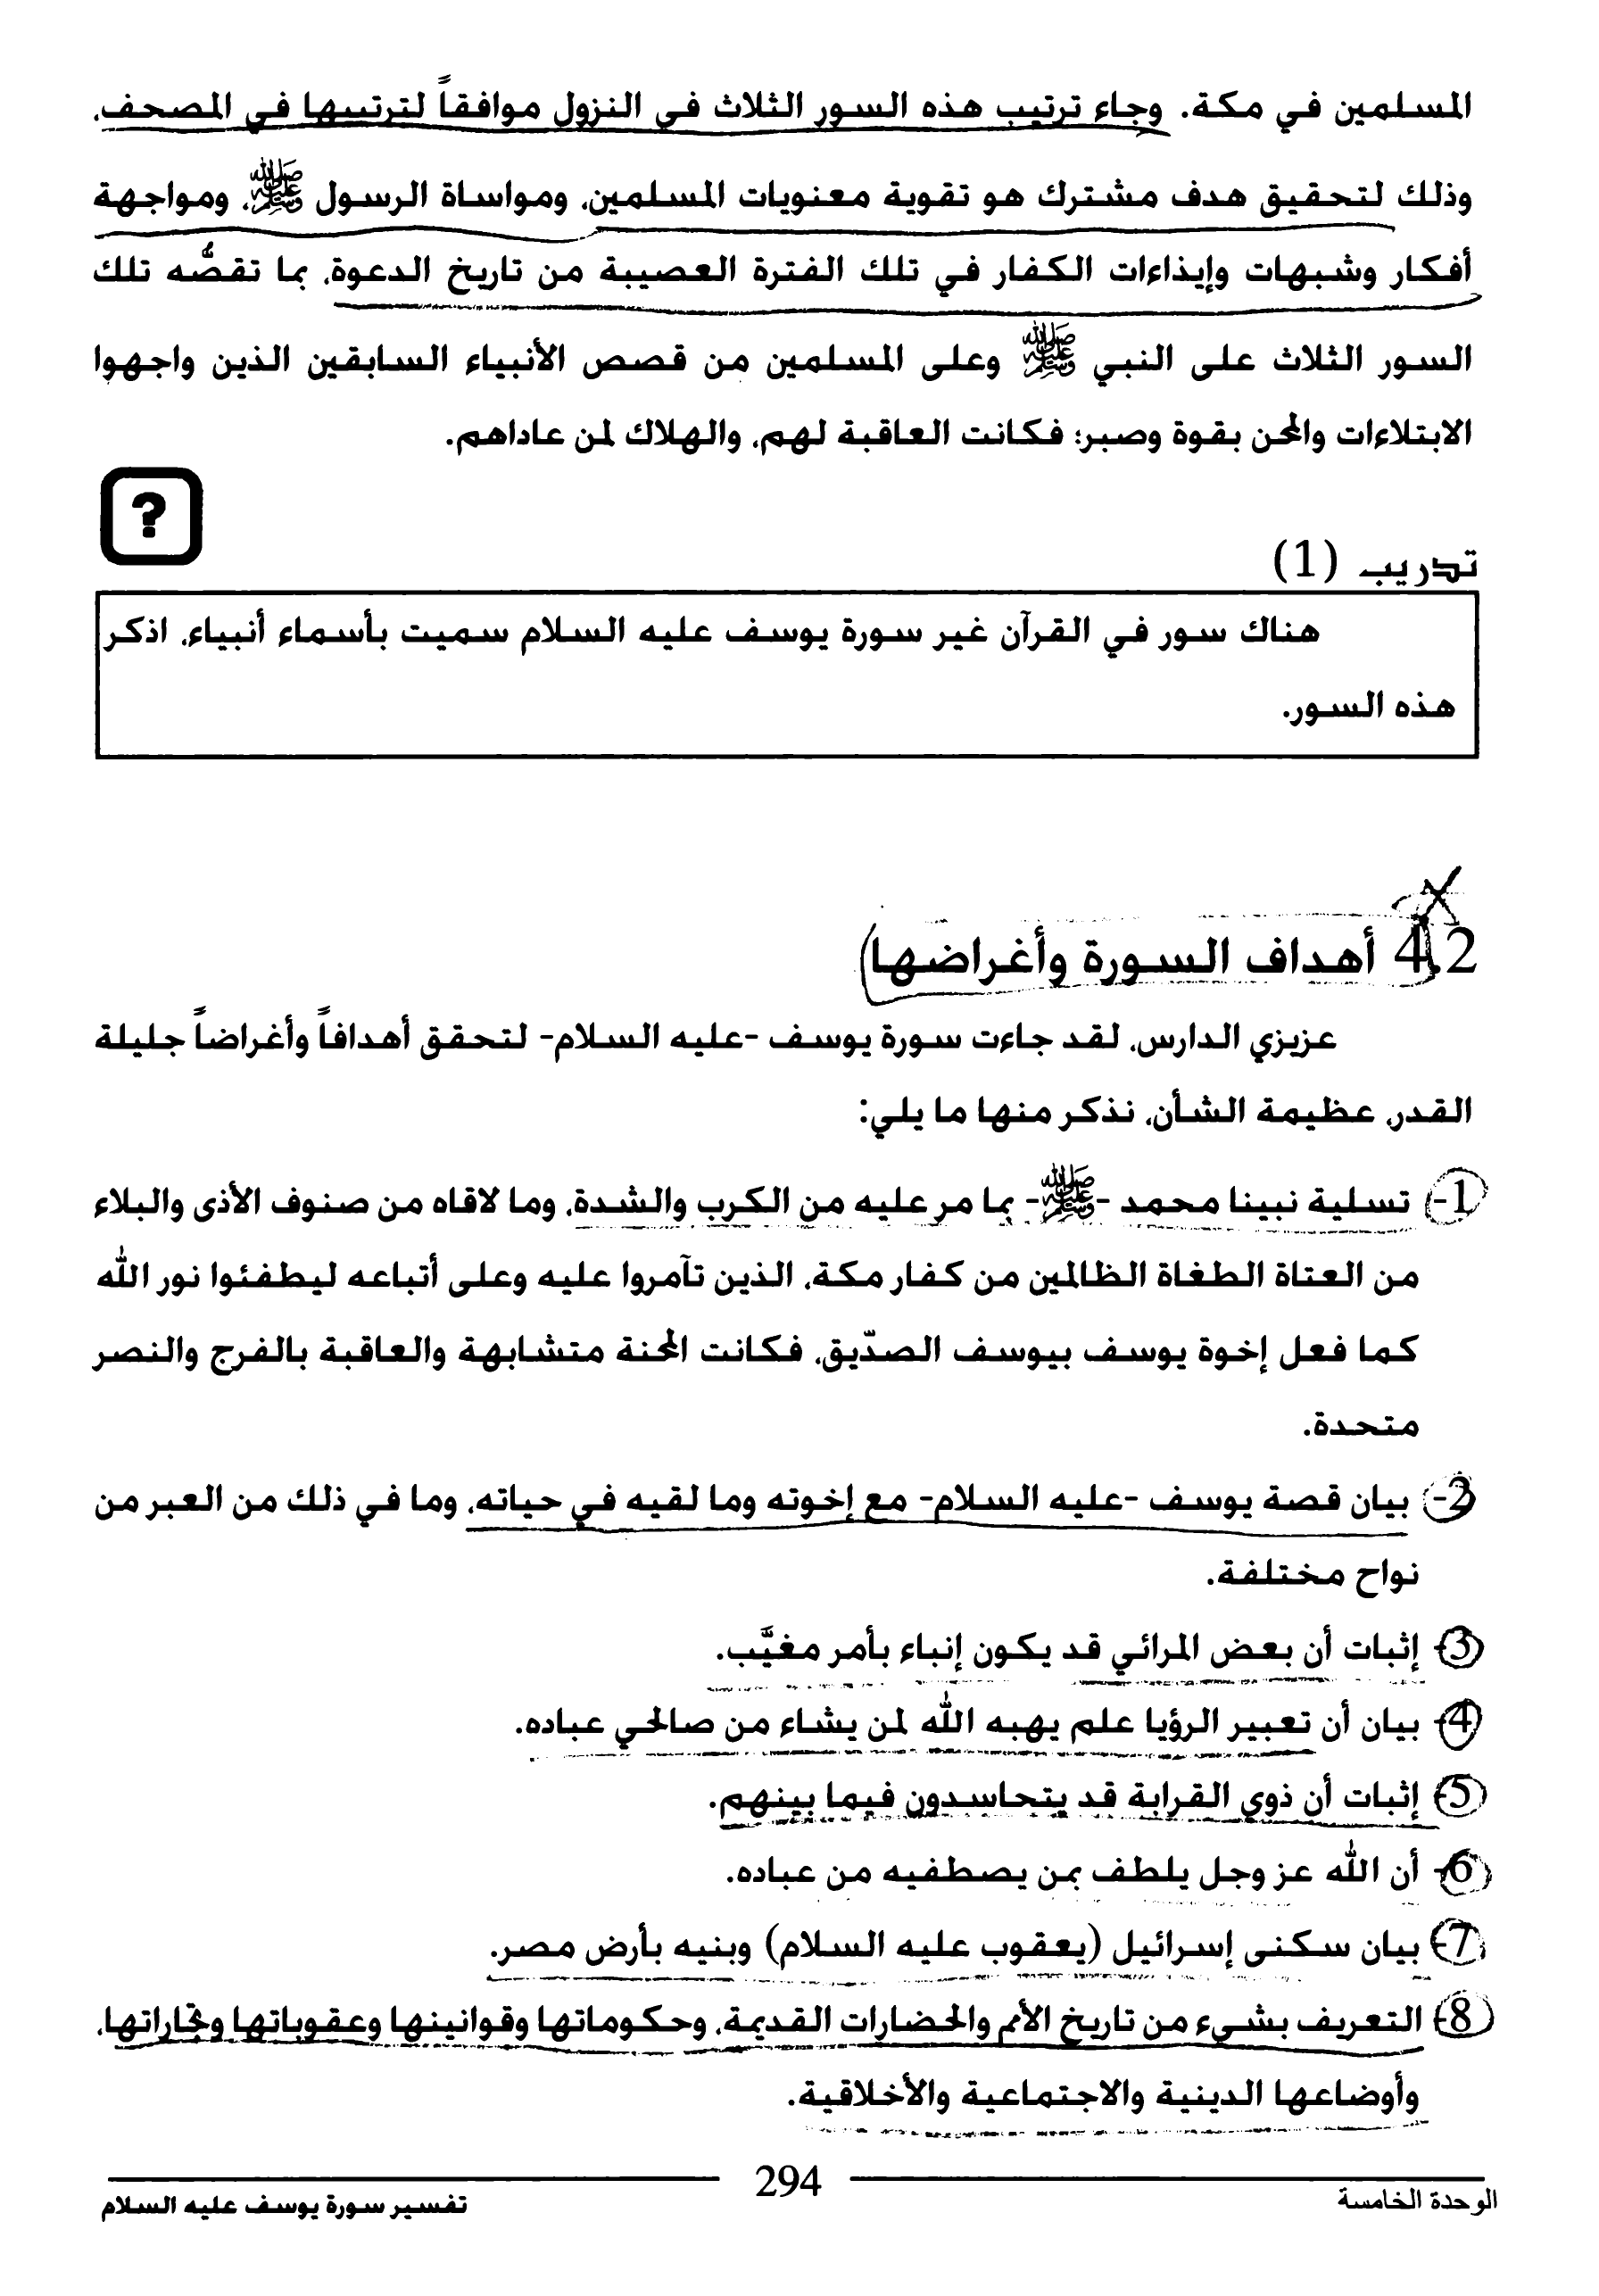 المسلمين في مكة. وجاء ترتيب هذه السور الثلاث في النزول موافقاً لترتيبها في المصحف،
وذلك لتحقيق هدف مشترك هو تقوية معنويات المسلمين، ومواساة الرسول ﷺ، ومواجهة
أفكار وشبهات وإيذاءات الكفار في تلك الفترة العصيبة من تاريخ الدعوة، بما تقصُّه تلك
السور الثلاث على النبي ﷺ وعلى المسلمين من قصص الأنبياء السابقين الذين واجهوا
الابتلاءات والمحن بقوة وصبر؛ فكانت العاقبة لهم، والهلاك لمن عاداهم.
?
تدريب (1)
هناك سور في القرآن غير سورة يوسف عليه السلام سميت بأسماء أنبياء، اذكر
هذه السور.
4.2 أهداف السورة وأغراضها
عزيزي الدارس، لقد جاءت سورة يوسف -عليه السلام- لتحقق أهدافاً وأغراضاً جليلة
القدر، عظيمة الشأن، نذكر منها ما يلي:
1- تسلية نبينا محمد -ﷺ- بما مر عليه من الكرب والشدة، وما لاقاه من صنوف الأذى والبلاء
من العتاة الطغاة الظالمين من كفار مكة، الذين تآمروا عليه وعلى أتباعه ليطفئوا نور الله
كما فعل إخوة يوسف بيوسف الصدّيق، فكانت المحنة متشابهة والعاقبة بالفرج والنصر
متحدة.
2- بيان قصة يوسف -عليه السلام- مع إخوته وما لقيه في حياته، وما في ذلك من العبر من
نواح مختلفة.
3- إثبات أن بعض المرائي قد يكون إنباء بأمر مغيَّب.
4- بيان أن تعبير الرؤيا علم يهبه الله لمن يشاء من صالحي عباده.
5- إثبات أن ذوي القرابة قد يتحاسدون فيما بينهم.
6- أن الله عز وجل يلطف بمن يصطفيه من عباده.
7- بيان سكنى إسرائيل (يعقوب عليه السلام) وبنيه بأرض مصر.
8- التعريف بشيء من تاريخ الأمم والحضارات القديمة، وحكوماتها وقوانينها وعقوباتها وتجاراتها،
وأوضاعها الدينية والاجتماعية والأخلاقية.
الوحدة الخامسة 294 تفسير سورة يوسف عليه السلام